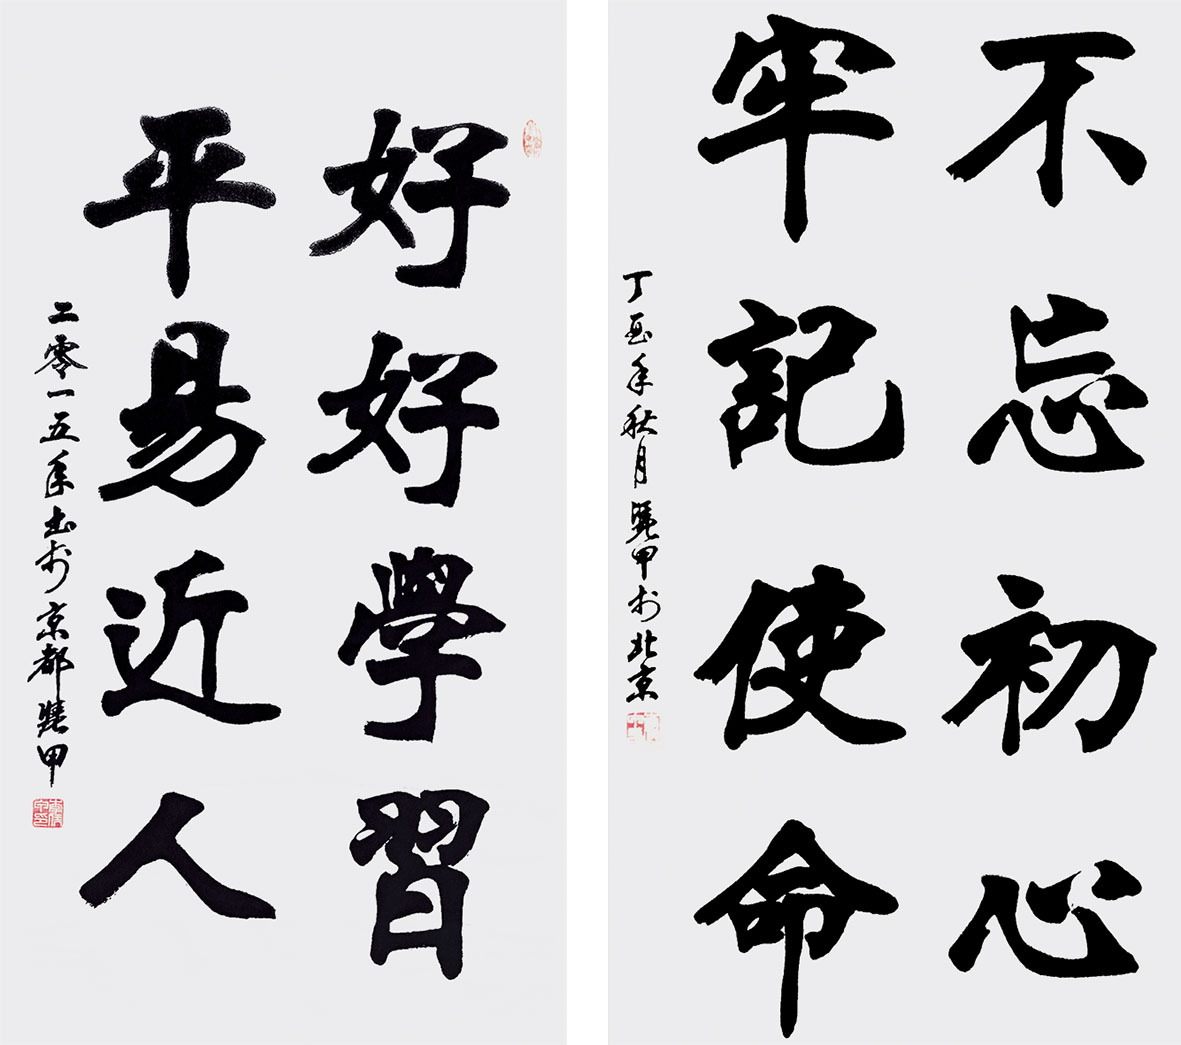 好好學習
平易近人
二零一五年书於京都
甲
不忘初心
牢記使命
丁酉年秋月
甲於北京